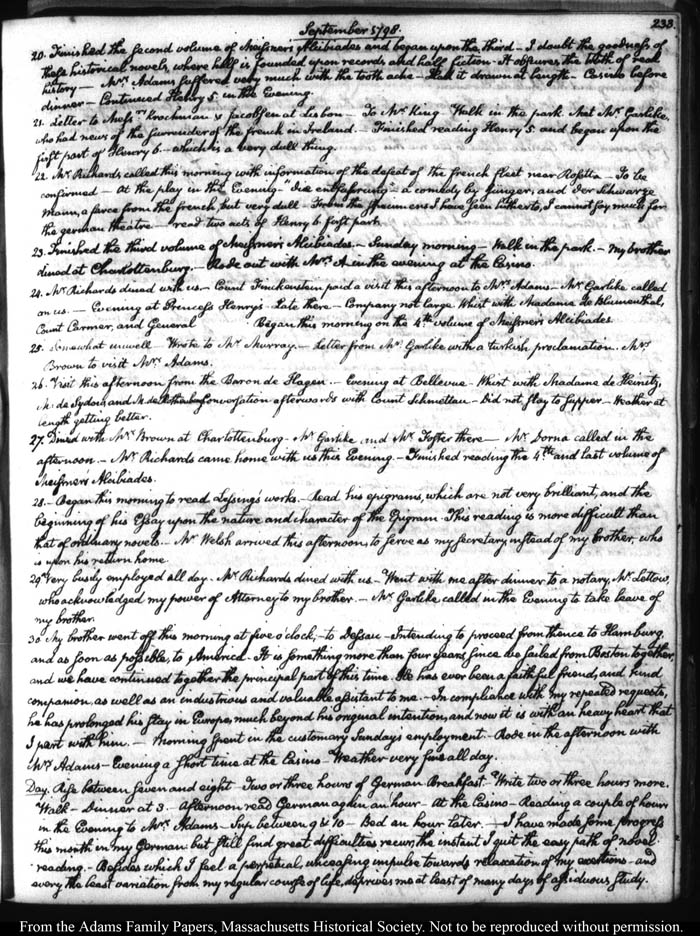 September 1798.
233
20. Finished the second volume of Meissners Alcibiades and began upon the third - I doubt the goodness of
these historical novels, where half is founded upon records and half fiction - It obscures the truth of real
history - Mrs. Adams suffered very much with the tooth ache - Had it drawn at length - Casino before
dinner - Continued Henry 5. in the Evening.
21. Letter to Messrs. Krochman & Jacobsen at Lisbon - To Mr. King Walk in the park. Met Mr. Garlike,
who had news of the surrender of the french in Ireland. - Finished reading Henry 5. and began upon the
first part of Henry 6. - which is a very dull thing.
22. Mr. Richards called this morning with information of the defeat of the french fleet near Rosetta - To be
confirmed - At the play in the Evening - "Die entführung" a comedy by Junger, and Der Schwarze
Mann, a farce from the french, but very dull - From the specimens I have seen hitherto, I cannot say much for
the german theatre - read two acts of Henry 6 first part.
23. Finished the third volume of Meissners Alcibiades. - Sunday morning - Walk in the park. - My brother
dined at Charlottenburg. - Rode out with Mrs. A in the evening at the Casino.
24. Mr. Richards dined with us - Count Finckenstein paid a visit this afternoon to Mrs. Adams - Mr. Garlike called
on us. - Evening at Princess Henry's - Late there - Company not large. Whist with Madame de Blumenthal,
Count Carmer, and General Began this morning on the 4th. volume of Meissners Alcibiades
25. Somewhat unwell - Wrote to Mr. Murray. - Letter from Mr. Garlike with a turkish proclamation. Mrs.
Brown to visit Mrs. Adams.
26. Visit this afternoon from the Baron de Hagen. - Evening at Bellevue - Whist with Madame de Heinitz,
M: de Sydow, and M. de Conversation afterwards with Count Schmettau - Did not stay to supper - Weather at
length getting better.
27. Dined with Mr. Brown at Charlottenburg - Mr. Garlike and Mr. Foster there - Mr. Dorna called in the
afternoon. - Mr. Richards came home with us this Evening - Finished reading the 4th. and last volume of
Meissners Alcibiades.
28. - Began this morning to read Lessing's works - Read his epigrams, which are not very brilliant, and the
beginning of his Essay upon the nature and character of the Epigram - This reading is more difficult than
that of ordinary novels - Mr. Welsh arrived this afternoon, to serve as my secretary, instead of my brother, who
is upon his return home.
29 Very busily employed all day - Mr. Richards dined with us - Went with me after dinner to a notary, Mr. Lettow,
who acknowledged my power of Attorney to my brother. - Mr. Garlike called in the Evening to take leave of
my brother.
30 My brother went off this morning at five o'clock, to Dessau - Intending to proceed from thence to Hamburg,
and as soon as possible, to America. - It is something more than four years since we sailed from Boston together,
and we have continued together the principal part of this time. He has ever been a faithful friend, and kind
companion, as well as an industrious and valuable assistant to me. - In compliance with my repeated requests,
he has prolonged his stay in Europe, much beyond his original intention, and now it is with an heavy heart that
I part with him. - Morning spent in the customary Sunday's employment - Rode in the afternoon with
Mrs. Adams - Evening a short time at the Casino - Weather very fine all day.
Day. Rise between seven and eight - Two or three hours of German Breakfast Write two or three hours more.
Walk - Dinner at 3. - Afternoon read German again an hour - At the Casino - Reading a couple of hours
in the Evening to Mrs. Adams - Sup between 9 & 10 - Bed an hour later. - I have made some progress
this month in my German but still find great difficulties recur, the instant I quit the easy path of novel
reading. - Besides which I feel a perpetual, unceasing impulse towards relaxation of my exertions - and
every the least variation from my regular course of life, deprives me at least of many days of assiduous study.
From the Adams Family Papers, Massachusetts Historical Society. Not to be reproduced without permission.